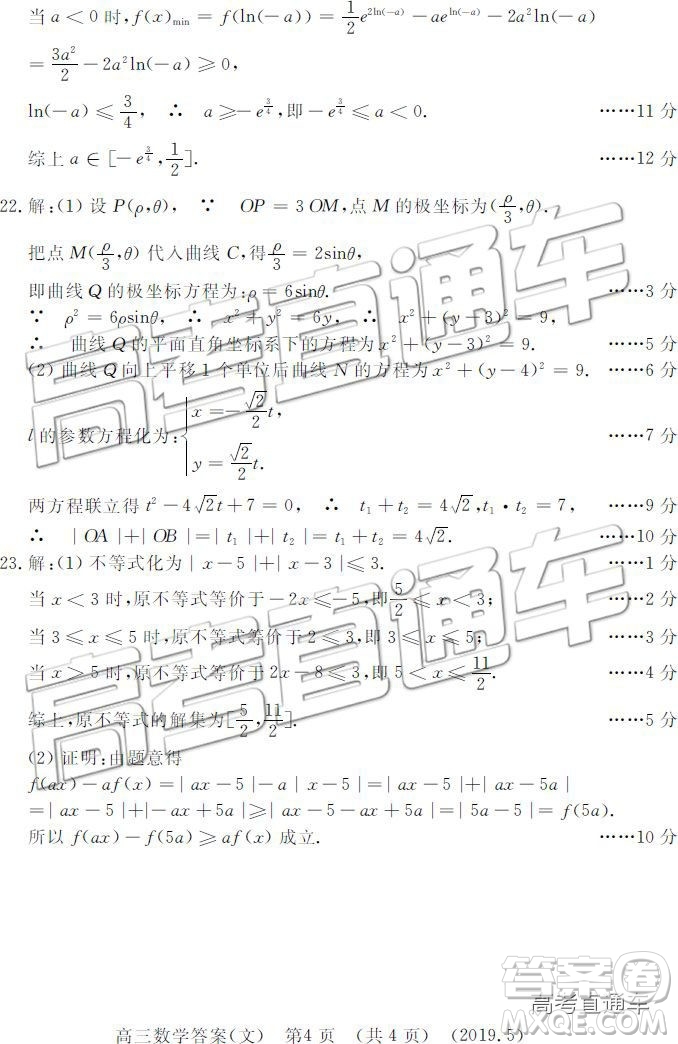 当 a < 0 时, f(x)min = f(ln(-a)) = 1/2 e^{2ln(-a)} - ae^{ln(-a)} - 2a²ln(-a)
= 3a²/2 - 2a²ln(-a) ⩾ 0,
ln(-a) ⩽ 3/4, ∴ a ⩾ -e^{3/4}, 即 -e^{3/4} ⩽ a < 0. ……11 分
综上 a ∈ [-e^{3/4}, 1/2]. ……12 分
22. 解:(1) 设 P(ρ,θ), ∵ OP = 3OM, 点 M 的极坐标为(ρ/3,θ).
把点 M(ρ/3,θ) 代入曲线 C, 得 ρ/3 = 2sinθ,
即曲线 Q 的极坐标方程为:ρ = 6sinθ. ……3 分
∵ ρ² = 6ρsinθ, ∴ x² + y² = 6y, ∴ x² + (y-3)² = 9,
∴ 曲线 Q 的平面直角坐标系下的方程为 x² + (y-3)² = 9. ……5 分
(2) 曲线 Q 向上平移 1 个单位后曲线 N 的方程为 x² + (y-4)² = 9. ……6 分
l 的参数方程化为:{ x = -√2/2 t, y = √2/2 t. ……7 分
两方程联立得 t² - 4√2t + 7 = 0, ∴ t₁ + t₂ = 4√2, t₁·t₂ = 7, ……9 分
∴ |OA|+|OB|=|t₁|+|t₂|= 4√2. ……10 分
23. 解:(1) 不等式化为 |x-5|+|x-3|⩽ 3. ……1 分
当 x < 3 时, 原不等式等价于 -2x ⩽ -5, 即 5/2 ⩽ x < 3; ……2 分
当 3 ⩽ x ⩽ 5 时, 原不等式等价于 2 ⩽ 3, 即 3 ⩽ x ⩽ 5; ……3 分
当 x > 5 时, 原不等式等价于 2x - 8 ⩽ 3, 即 5 < x ⩽ 11/2. ……4 分
综上, 原不等式的解集为[5/2, 11/2]. ……5 分
(2) 证明:由题意得
f(ax) - af(x) =|ax-5|-a|x-5|=|ax-5|+|-ax+5a|
=|ax-5|+|-ax+5a|⩾|ax-5-ax+5a|=|5a-5|= f(5a).
所以 f(ax) - f(5a) ⩾ af(x) 成立. ……10 分
高考直通车
高考直通车
答案圈
高考直通车
高三数学答案(文) 第4页 (共4页) (2019.5)